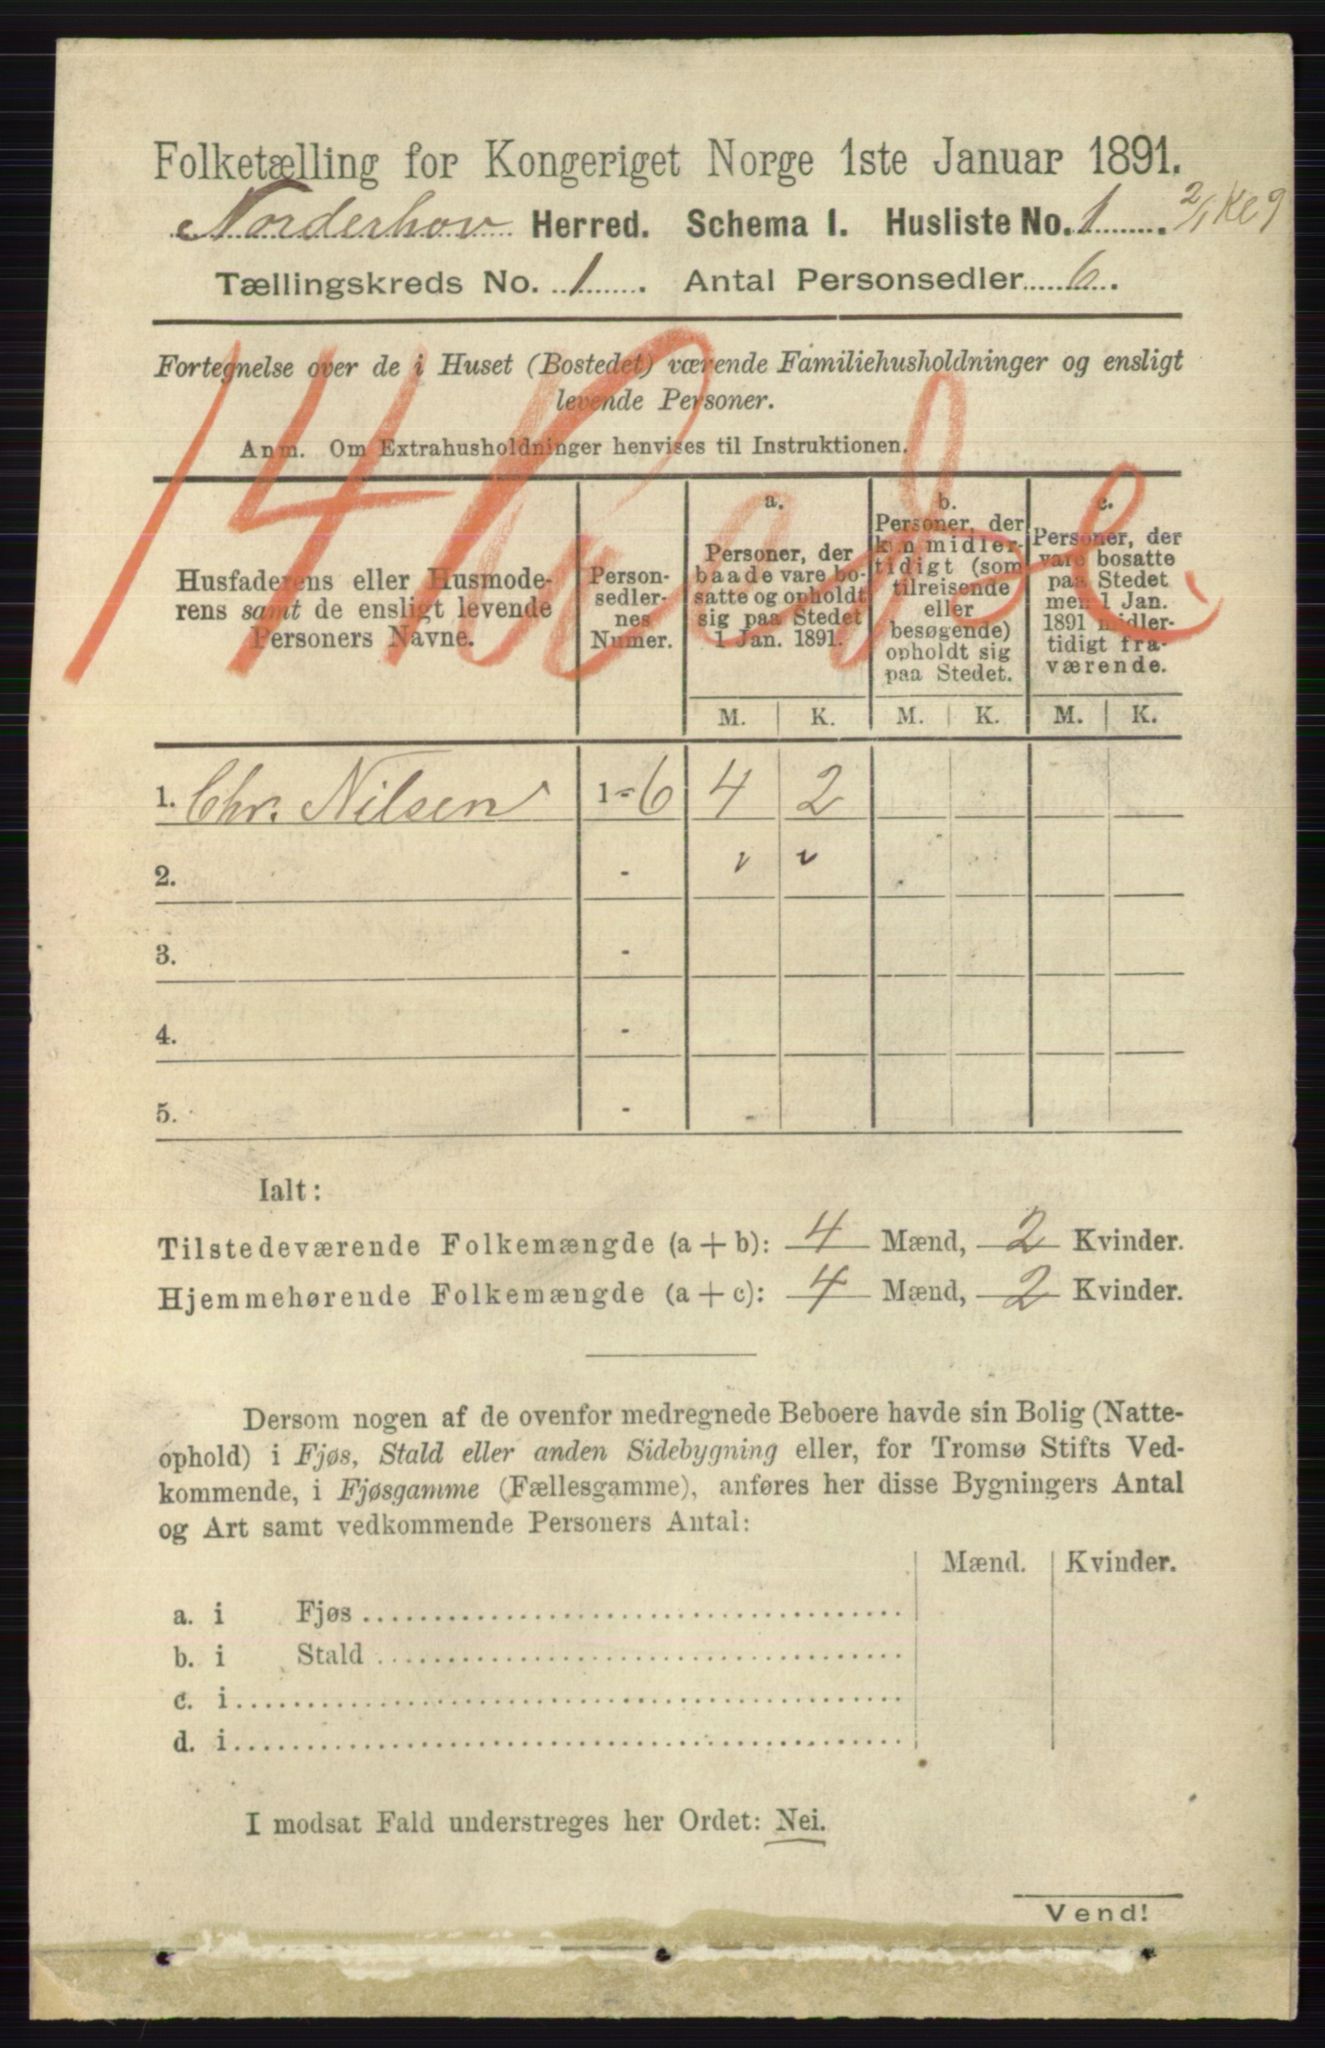 Folketælling for Kongeriget Norge 1ste Januar 1891.
Norderhov Herred. Schema I. Husliste No. 1
Tællingskreds No. 1. Antal Personsedler 6.
Fortegnelse over de i Huset (Bostedet) værende Familiehusholdninger og ensligt
levende Personer.
Anm. Om Extrahusholdninger henvises til Instruktionen.
14
Husfaderens eller Husmode-
rens samt de ensligt levende
Personers Navne.
Person-
sedler-
nes
Numer.
a.
Personer, der
baade vare bo-
satte og opholdt
sig paa Stedet
1 Jan. 1891.
b.
Personer, der
kun midler-
tidigt (som
tilreisende
eller
besøgende)
opholdt sig
paa Stedet.
c.
Personer, der
vare bosatte
paa Stedet
men 1 Jan.
1891 midler-
tidigt fra-
værende.
M. K. M. K. M. K.
1. Chr. Nilsen 1-6 4 2
2. -
3. -
4. -
5. -
Ialt:
Tilstedeværende Folkemængde (a + b): 4 Mænd, 2 Kvinder.
Hjemmehørende Folkemængde (a + c): 4 Mænd, 2 Kvinder.
Dersom nogen af de ovenfor medregnede Beboere havde sin Bolig (Natte-
ophold) i Fjøs, Stald eller anden Sidebygning eller, for Tromsø Stifts Ved-
kommende, i Fjøsgamme (Fællesgamme), anføres her disse Bygningers Antal
og Art samt vedkommende Personers Antal:
Mænd. Kvinder.
a. i Fjøs
b. i Stald
c. i
d. i
I modsat Fald understreges her Ordet: Nei.
Vend!